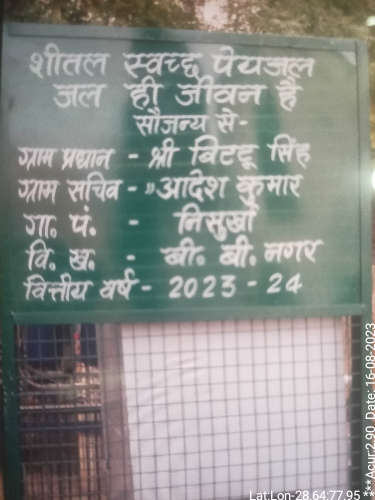 शीतल स्वच्छ पेयजल
जल ही जीवन है
सौजन्य से-
ग्राम प्रधान - श्री बिटटू सिंह
ग्राम सचिव - " आदेश कुमार
गा॰ पं. - निसुर्खा
वि. ख॰ - बी. बी. नगर
वित्तीय वर्ष - 2023 - 24
Lat:Lon-28.64:77.95
***Acur:2.90 Date: 16-08-2023